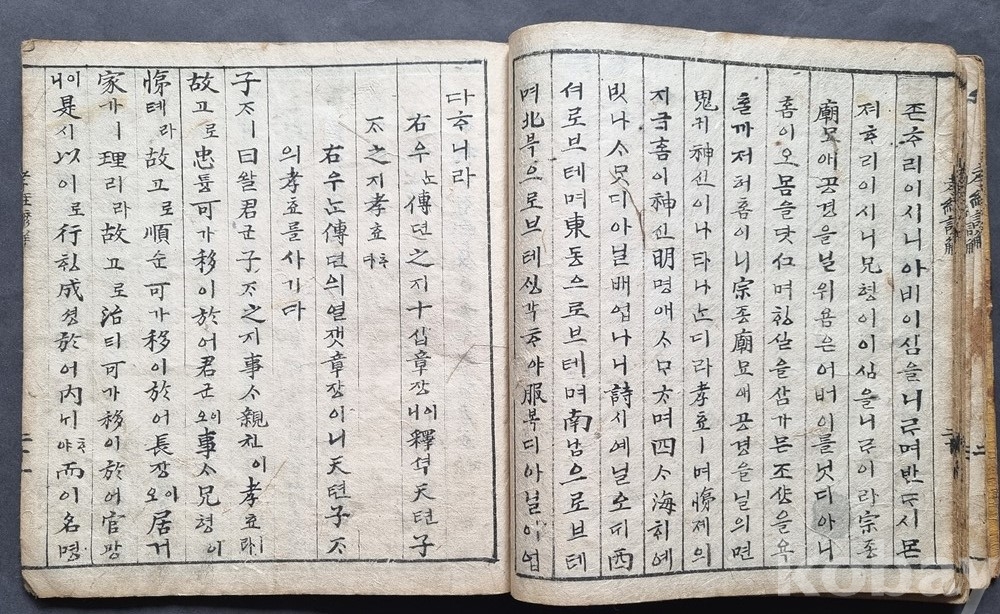 존ᄒᆞ리이시니아비이심을니ᄅᆞ며반ᄃᆞ시몬
져ᄒᆞ리이시니兄형이이심을니ᄅᆞ이라宗종
廟묘애공경을닐위욤은어버이를닛디아니
홈이오몸을닷ᄀᆞ며ᄒᆡᆼ실을삼가몬조샹을욕
ᄒᆞᆯ까저허홈이니宗종廟묘애공경을닐의면
鬼귀神신이나타나ᄂᆞᆫ디라孝효ㅣ며悌뎨의
지극홈이神신明명애ᄉᆞᄆᆞᄎᆞ며四ᄉᆞ海ᄒᆡ예
빗나ᄉᆞᄆᆞᆺ디아닐배업나니詩시예닐오ᄃᆡ西
셔로브테며東동으로브테며南남으로브테
며北북으로브테ᄉᆡᆼ각ᄒᆞ야服복디아닐이업
다ᄒᆞ니라
右우ᄂᆞᆫ傳뎐之지十십章장이니釋셕天텬子
ᄌᆞ之지孝효ᄒᆞ다
右우ᄂᆞᆫ傳뎐의열잿章장이니天텬子ᄌᆞ
의孝효를사기다
子ᄌᆞㅣ曰왈君군子ᄌᆞ之지事ᄉᆞ親친이孝효ㅣ라
故고로忠튱可가移이於어君군이오事ᄉᆞ兄형이
悌톄라故고로順슌可가移이於어長쟝이오居거
家가ㅣ理리라故고로治티可가移이於어官관
이니是시以이로行ᄒᆡᆼ成셩於어內ᄂᆡᄒᆞ야而이名명
孝經諺解
kobay